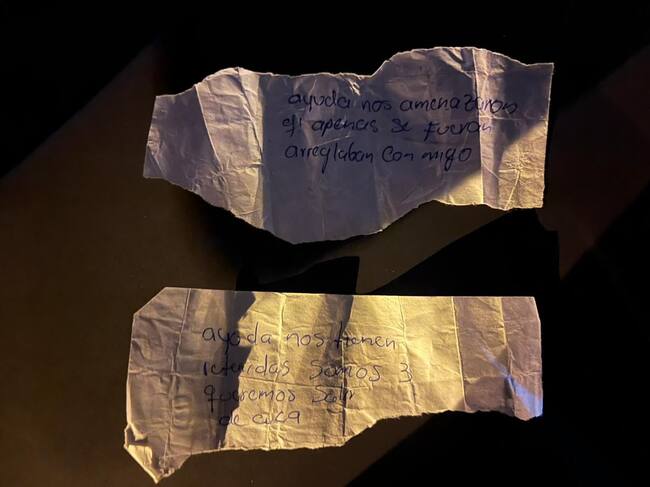 ayuda nos amenazaron
q' apenas se fueran
arreglaban con migo
ayuda nos tienen
retenidas somos 3
queremos salir
de aca